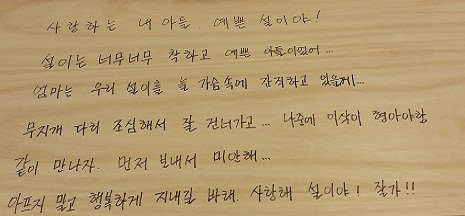 사랑하는 내 아들 예쁜 설이야!
설이는 너무너무 착하고 예쁜 아들이었어...
엄마는 우리 설이를 늘 가슴속에 간직하고 있을게...
무지개 다리 조심해서 잘 건너가고... 나중에 이삭이 형아야랑
같이 만나자. 먼저 보내서 미안해...
아프지 말고 행복하게 지내길 바래. 사랑해 설이야! 잘가!!